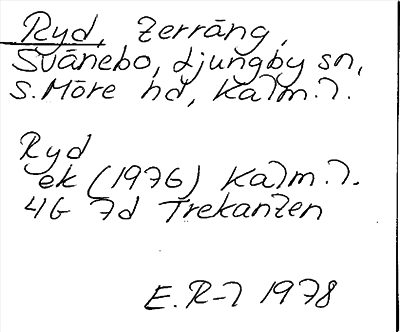 Ryd, Terräng,
Svänebo, Ljungby sn,
S. Möre hd, Kalm. l.
Ryd
ek (1976) Kalm. l.
4G 7d Trekanten
E. R-l 1978